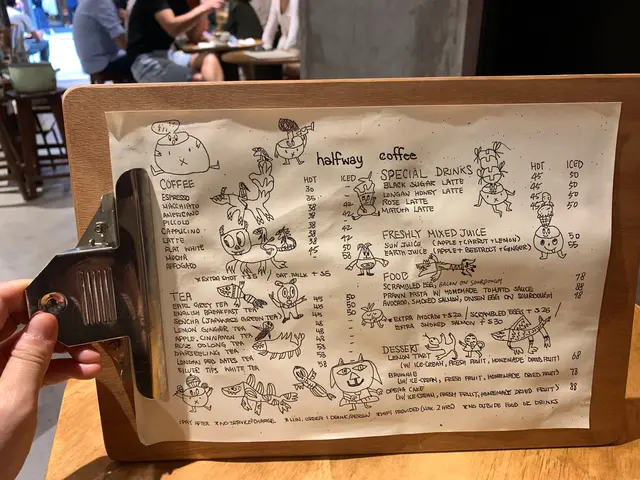 halfway coffee
COFFEE HOT ICED
ESPRESSO 30
MACCHIATO 35
AMERICANO 38
PICCOLO 38
CAPPUCINO 38
LATTE 38
FLAT WHITE 38
MOCHA 45
AFFOGATO
*EXTRA SHOT +5 OAT MILK +5
TEA
EARL GREY TEA
ENGLISH BREAKFAST TEA
SENCHA (JAPANESE GREEN TEA)
LEMON GINGER TEA
APPLE, CINNAMON TEA
ROSE OOLONG TEA
DARJEELING TEA
LONGAN, RED DATES TEA
SILVER TIPS WHITE TEA
SPECIAL DRINKS HOT ICED
BLACK SUGAR LATTE 45 50
LONGAN HONEY LATTE 45 50
ROSE LATTE 45 50
MATCHA LATTE 45 50
FRESHLY MIXED JUICE
SUN JUICE (APPLE + CARROT + LEMON) 50
EARTH JUICE (APPLE + BEETROOT + GINGER) 55
FOOD
SCRAMBLED EGG, BACON ON SOURDOUGH 78
PRAWN PASTA W/ HOMEMADE TOMATO SAUCE 88
AVOCADO, SMOKED SALMON, ONSEN EGGS ON SOURDOUGH 98
*EXTRA AVOCADO +$20 / SCRAMBLED EGGS +$26
EXTRA SMOKED SALMON +$30
DESSERT
LEMON TART 68
(W/ ICE-CREAM, FRESH FRUIT, HOMEMADE DRIED FRUIT)
BROWNIE 78
(W/ ICE-CREAM, FRESH FRUIT, HOMEMADE DRIED FRUIT)
OPERA CAKE 88
(W/ ICE-CREAM, FRESH FRUIT, HOMEMADE DRIED FRUIT)
*NO SERVICE CHARGE *MIN. ORDER 1 DRINK/PERSON *WIFI PROVIDED (MAX. 2 HRS) *NO OUTSIDE FOOD OR DRINKS